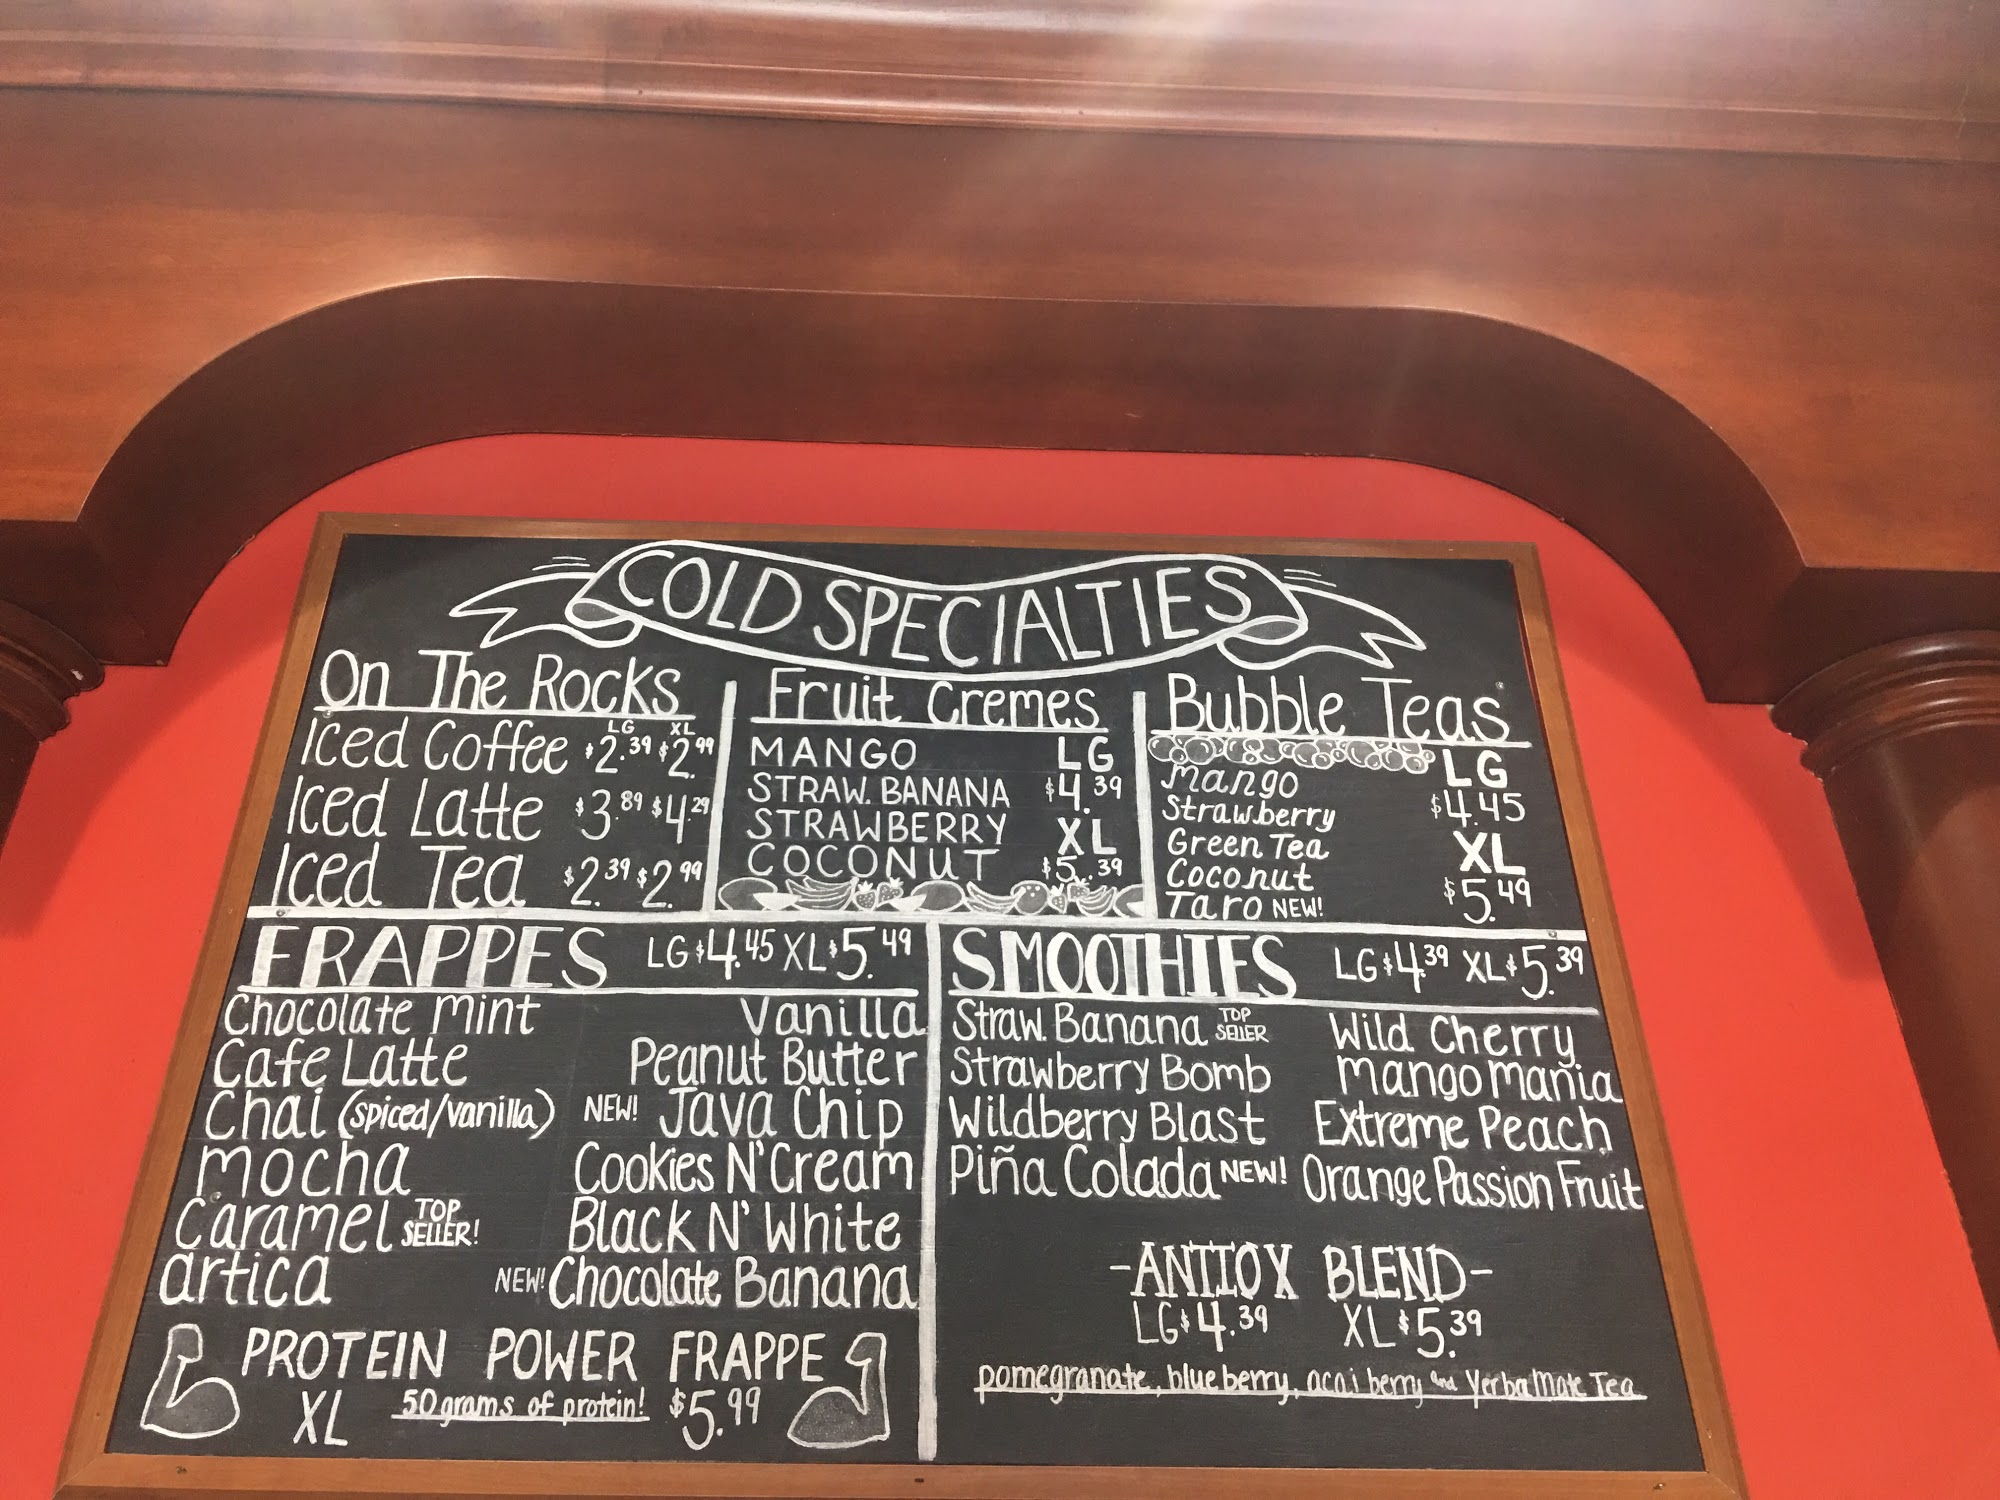 COLD SPECIALTIES
On The Rocks
LG XL
Iced Coffee $2.39 $2.99
Iced Latte $3.89 $4.29
Iced Tea $2.39 $2.99
Fruit Cremes
MANGO LG
STRAW. BANANA $4.39
STRAWBERRY XL
COCONUT $5.39
Bubble Teas
LG
Mango
Strawberry $4.45
Green Tea XL
Coconut $5.49
Taro NEW!
FRAPPES LG $4.45 XL $5.49
Chocolate Mint Vanilla
Cafe Latte Peanut Butter
Chai (spiced/vanilla) NEW! Java Chip
Mocha Cookies N' Cream
Caramel TOP SELLER! Black N' White
artica NEW! Chocolate Banana
PROTEIN POWER FRAPPE
XL 50 grams of protein! $5.99
SMOOTHIES LG $4.39 XL $5.39
Straw. Banana TOP SELLER Wild Cherry
Strawberry Bomb Mango Mania
Wildberry Blast Extreme Peach
Piña Colada NEW! Orange Passion Fruit
-ANTIOX BLEND-
LG $4.39 XL $5.39
pomegranate, blueberry, acai berry and Yerba Mate Tea